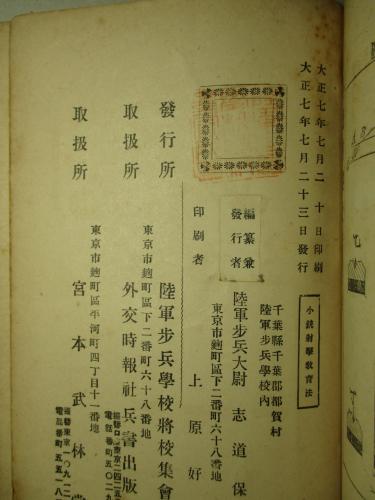 大正七年七月二十日印刷
大正七年七月二十三日發行
小銃射擊教育法
千葉縣千葉郡都賀村
陸軍步兵學校內
編纂兼
發行者
陸軍步兵大尉 志道保
東京市麴町區下二番町六十八番地
印刷者
上原好
發行所
陸軍步兵學校將校集會
東京市麴町區下二番町六十八番地
取扱所
外交時報社兵書出版
東京市麴町區平河町四丁目十一番地
取扱所
宮本武林堂